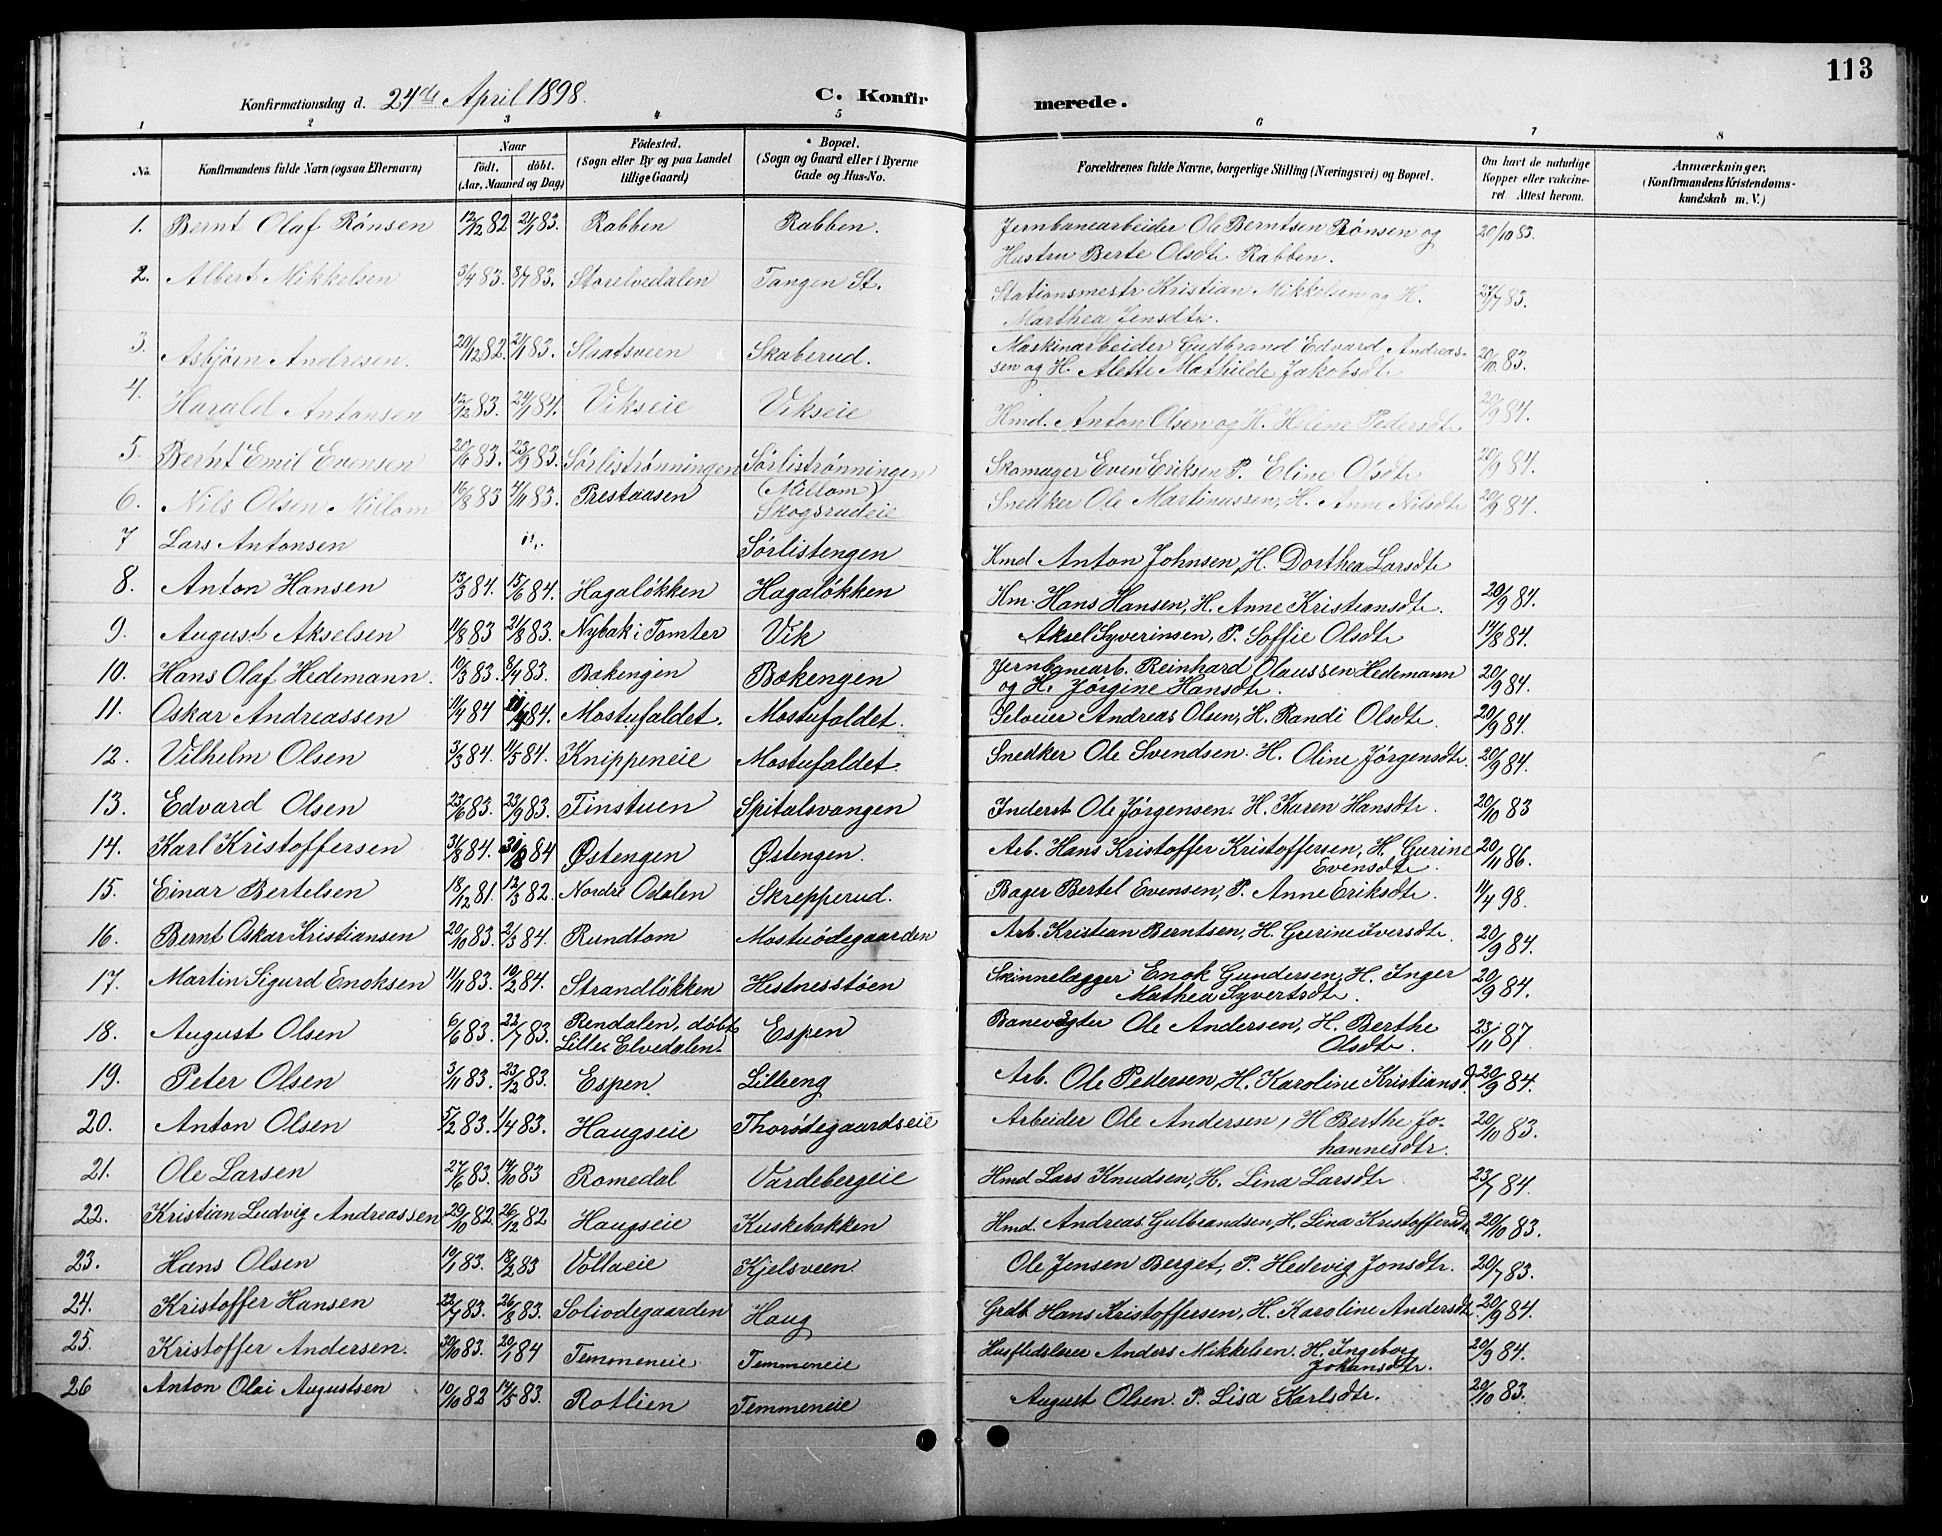 113
Konfirmationsdag d. 24de April 1898. C. Konfirmerede.
1 2 3 4 5 6 7 8
No. Konfirmandens fulde Navn (ogsaa Efternavn) Naar født. døbt. (Aar, Maaned og Dag) Födested. (Sogn eller By og paa Landet tillige Gaard) Bopæl. (Sogn og Gaard eller i Byerne Gade og Hus-No. Forældrenes fulde Navne, borgerlige Stilling (Næringsvei) og Bopæl. Om havt de naturlige Kopper eller vakcineret Attest herom. Anmærkninger, (Konfirmandens Kristendomskundskab m. V.)
1. Bernt Olaf Rønsen 12/12 82 21/1 83. Rabben Rabben. Jernbanearbeider Ole Berntsen Rønsen og 20/10 83.
Hustru Berte Olsdtr Rabben.
2. Albert Mikkelsen 3/4 83. 8/7 83. Storelvedalen Tangen St. Stationsmestr Kristian Mikkelsen og H. 27/7 83.
Marthea Jensdtr.
3. Asbjørn Andresen. 20/12 82. 21/1 83. Slaatsveen Skaberud. Maskinarbeider Gudbrand Edvard Andreas- 20/10 83.
sen og H. Alette Mathilde Jakobsdtr
4. Harald Antonsen 12/12 83. 24/1 84. Vikseie Vikseie Hmd. Anton Olsen og H. Helene Pedersdtr 20/9 84.
5. Bernt Emil Evensen 20/6 83. 23/9 83. Sørlistrønningen Sørlistrønningen Skomager Even Eriksen P. Eline Olsdtr 20/9 84.
6. Nils Olsen Millom 16/8 83 4/11 83. Prestaasen (Millom) Skogsrudeie Snedker Ole Martinussen, H. Anne Nilsdtr 20/9 84.
7 Lars Antonsen Sørlistengen Kmd Anton Johnsen, H. Dorthea Larsdtr
8. Anton Hansen 13/3 84. 15/6 84. Hagaløkken Hagaløkken Km. Hans Hansen, H. Anne Kristiansdtr. 20/9 84.
9. August Akselsen 11/8 83 21/8 83. Nybak i Tomter Vik Aksel Syverinsen, P. Soffie Olsdtr 14/8 84.
10. Hans Olaf Hedemann. 10/3 83. 8/4 83. Bakengen Bakengen Jernbanearb. Reinhard Olaussen Hedemann 20/9 84.
og H. Jørgine Hansdtr.
11. Oskar Andreassen 11/4 84 84. Mostufaldet. Mostufaldet. Selveier Andreas Olsen, H. Randi Olsdtr. 20/9 84.
12. Vilhelm Olsen 3/3 84. 11/5 84. Knippeneie Mostufaldet. Snedker Ole Svendsen. H. Oline Jørgensdtr. 20/9 84.
13. Edvard Olsen 23/6 83. 23/9 83. Tinstuen Spitalsvangen Inderst Ole Jørgensen. H. Karen Hansdtr. 20/10 83
14. Karl Kristoffersen 3/8 84. 31/8 84 Østengen Østengen. Arb. Hans Kristoffer Kristoffersen, H. Gurine 20/11 86.
Evensdtr.
15. Einar Bertelsen 18/12 81. 12/3 82. Nordre Odalen Skrepperud. Bager Bertel Evensen, P. Anne Eriksdtr. 11/4 98.
16. Bernt Oskar Kristiansen 20/10 83. 2/3 84. Rundtom Mostuödegaarden Arb. Kristian Berntsen, H. Gurine Iversdtr. 20/9 84.
17. Martin Sigurd Enoksen 11/11 83. 10/2 84. Strandløkken Hestnesstøen Skinnelægger Enok Gundersen, H. Inger 20/9 84.
Mathea Syvertsdtr.
18. August Olsen 6/6 83. 22/7 83. Rendalen, døbt Lille Elvedalen. Espen Banevogter Ole Andersen, H. Berthe 23/11 87.
Olsdtr.
19. Peter Olsen 3/11 83. 23/12 83. Espen. Lilleng Arb. Ole Pedersen, H. Karoline Kristiansd. 20/9 84.
20. Anton Olsen 5/2 83. 1/4 83. Haugseie Thorödegaardseie Arbeider Ole Andersen, H Berthe Jo- 20/10 83.
hannesdtr.
21. Ole Larsen 27/6 83. 14/10 83 Romedal Vardebergeie Hmd Lars Knudsen, H. Lina Larsdtr. 23/7 84.
22. Kristian Ludvig Andreassen 29/10 82. 26/12 82 Haugseie Kuskebakken Hmd. Andreas Gulbrandsen, H. Lina Kristoffersdtr 20/10 83.
23. Hans Olsen 19/1 83. 18/2 83 Vollaeie Kjelsveen Ole Jensen Berget, P. Hedevig Jonsdtr. 20/7 83.
24. Kristoffer Hansen 22/7 83. 26/8 83. Soliödegaarden Haug Grdb. Hans Kristoffersen, H. Karoline Andersdtr. 20/9 84.
25. Kristoffer Andersen. 30/10 83. 20/1 84 Temmeneie. Temmeneie Husflidslærer Anders Mikkelsen. H. Ingeborg 20/9 84.
Johansdtr.
26 Anton Olai Augustsen 10/10 82 14/5 83. Rotlien Temmeneie August Olsen. P. Lisa Karlsdtr. 20/10 83.